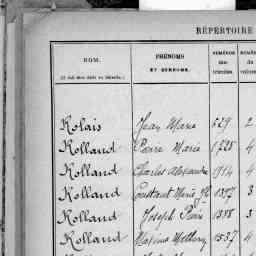 RÉPERTOIRE
NOM.
PRÉNOMS
ET SURNOMS.
NUMÉROS
NUMÉRO
Kolais Jean Marie 629 2
Kolland Pierre Marie 1725 4
Kolland Charles Alexandre 1914 4
Kolland Constant Marie 1397 3
Kolland Joseph Pierre 1388 3
Kolland Maxime 1537 4